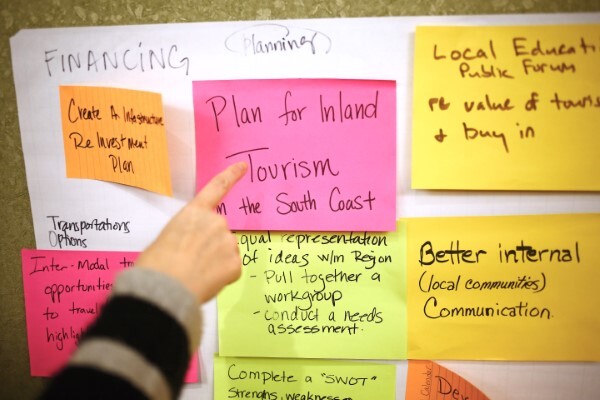 FINANCING
Planning
Create An Infastructure
Re Investment
Plan
Plan for Inland
Tourism
in the South Coast
Local Educati
Public Forum
re value of touris
& buy in
Transportations
Options
Inter-Modal t
opportunities
to trave
highligh
Equal representation
of ideas w/in Region
- Pull together a
workgroup
- Conduct a needs
assessment.
Better internal
(local communities)
Communication.
Complete a "SWOT"
Strengths, weakness
Calendar
Dev